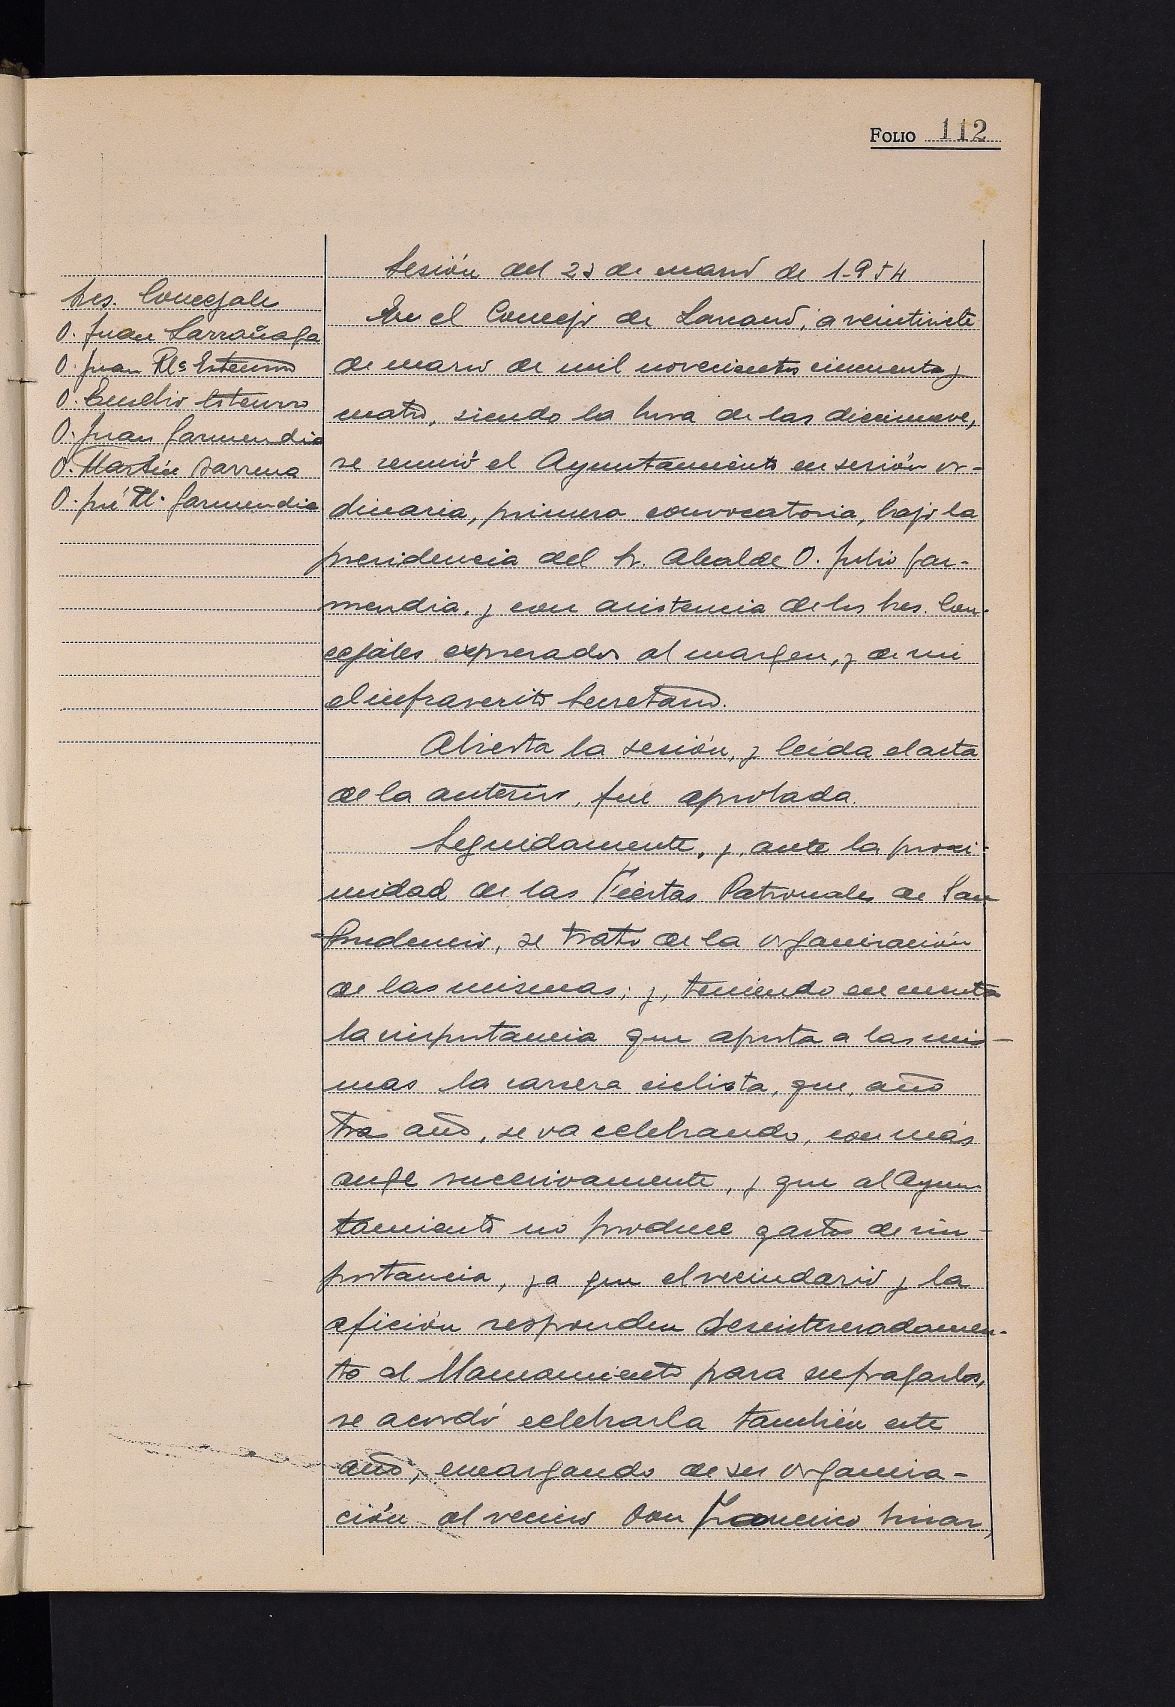 FOLIO 112
Sres. Concejales
D. Juan Larrañaga
D. Juan Mª Estensoro
D. Emilio Estensoro
D. Juan Garmendia
D. Martín Larrena
D. José M. Garmendia
Sesión del 27 de marzo de 1.954
En el Concejo de Larraul, a veintisiete
de marzo de mil novecientos cincuenta y
cuatro, siendo la hora de las diecinueve,
se reunió el Ayuntamiento en sesión or-
dinaria, primera convocatoria, bajo la
presidencia del Sr. Alcalde D. Julio Gar-
mendia, y con asistencia de los Sres. Con-
cejales expresados al margen, y de mi
el infrascrito Secretario.
Abierta la sesión, y leída el acta
de la anterior, fué aprobada.
Seguidamente, y, ante la proxi-
midad de las Fiestas Patronales de San
Prudencio, se trató de la organización
de las mismas; y, teniendo en cuenta
la importancia que aporta a las mis-
mas la carrera ciclista, que, año
tras año, se va celebrando, con más
auge sucesivamente, y que al Ayun-
tamiento no produce gastos de im-
portancia, ya que el vecindario y la
afición responden desinteresadamen-
te al llamamiento para sufragarlos,
se acordó celebrarla también este
año, encargando de su organiza-
ción al vecino Don Francisco